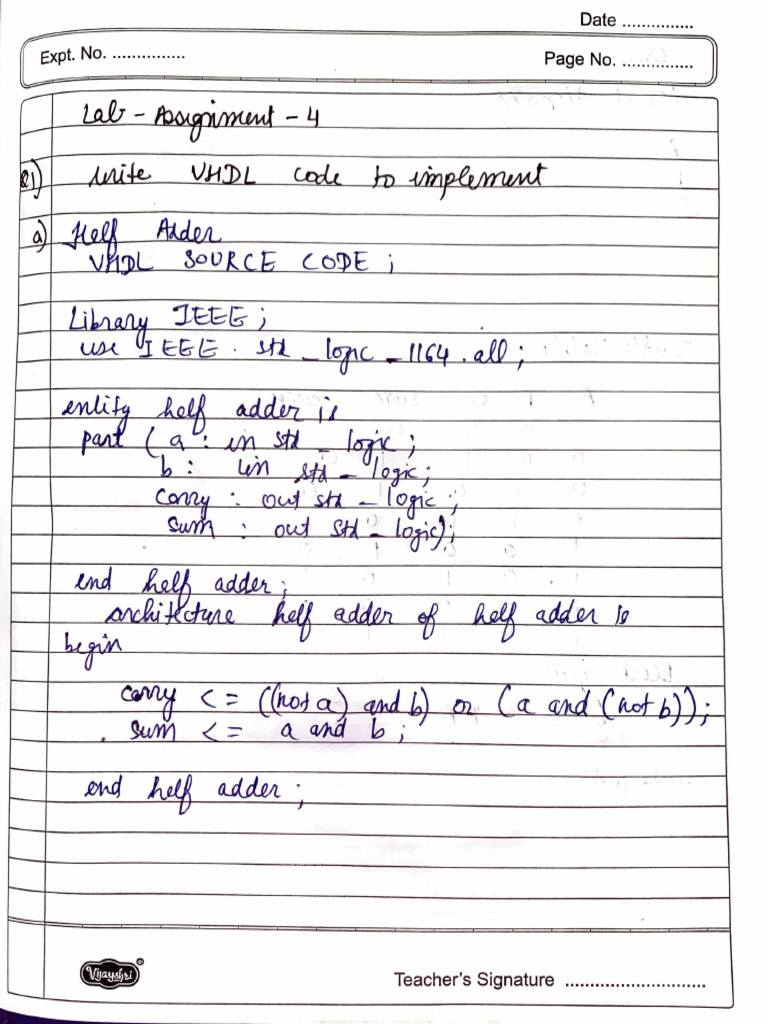 Date ...............
Expt. No. ...............
Page No. ...............
Lab - Assignment - 4
Q1) write VHDL code to implement
a) Helf Adder
VHDL SOURCE CODE ;
Library IEEE ;
use IEEE . std _ logic _ 1164 . all ;
entity helf adder is
part ( a : in std _ logic ;
b : in std _ logic ;
carry : out std _ logic ;
sum : out std _ logic) ;
end helf adder ;
architecture helf adder of helf adder is
begin
carry <= ((not a) and b) or (a and (not b)) ;
sum <= a and b ;
end helf adder ;
Vijayshri
Teacher's Signature ...............................